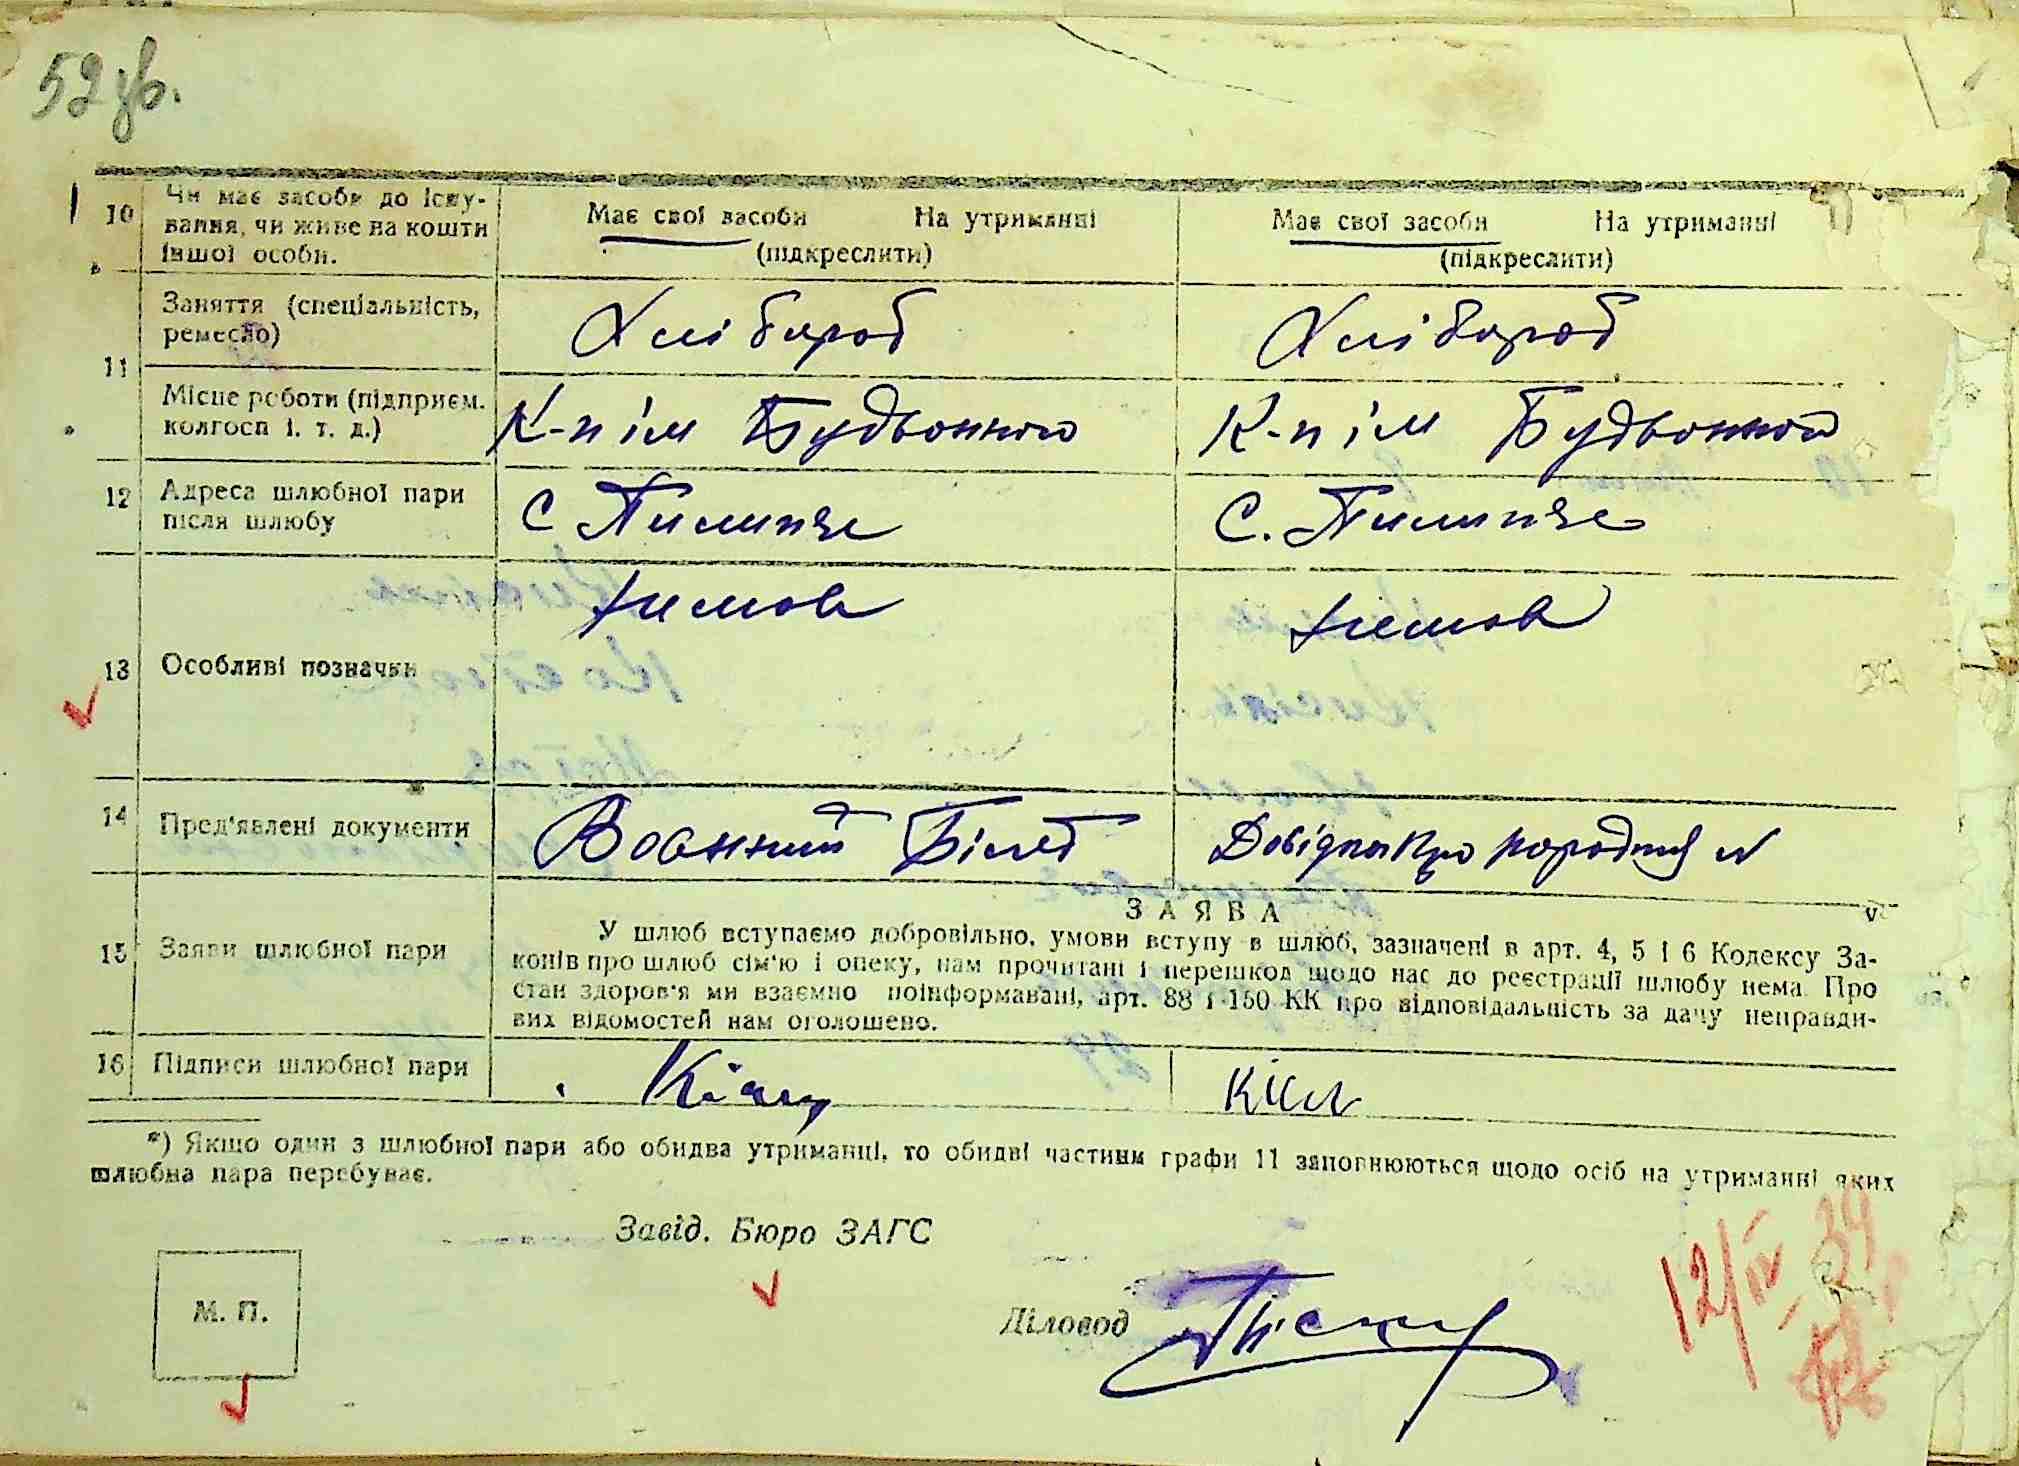 52 зв.
10 Чи має засоби до існу-
вання, чи живе на кошти
іншої особи.
Має свої засоби На утриманні
(підкреслити)
Має свої засоби На утриманні
(підкреслити)
11 Заняття (спеціальність,
ремесло)
Хлібороб
Хлібороб
Місце роботи (підприєм.
колгосп і. т. д.)
К-п ім Будьонного
К-п ім Будьонного
12 Адреса шлюбної пари
після шлюбу
С
С.
13 Особливі позначки
Немов
Немов
14 Пред'явлені документи
Воєнний Білет
Довідка про народження
15 Заяви шлюбної пари
ЗАЯВА
У шлюб вступаємо добровільно, умови вступу в шлюб, зазначені в арт. 4, 5 і 6 Кодексу За-
конів про шлюб сім'ю і опеку, нам прочитані і перешкод щодо нас до реєстрації шлюбу нема. Про
стан здоров'я ми взаємно поінформавані, арт. 88 і 150 КК про відповідальність за дачу неправди-
вих відомостей нам оголошено.
16 Підписи шлюбної пари
*) Якщо один з шлюбної пари або обидва утриманці, то обидві частини графи 11 заповнюються щодо осіб на утриманні яких
шлюбна пара перебуває.
Завід. Бюро ЗАГС
М. П.
Діловод
12/IV 39